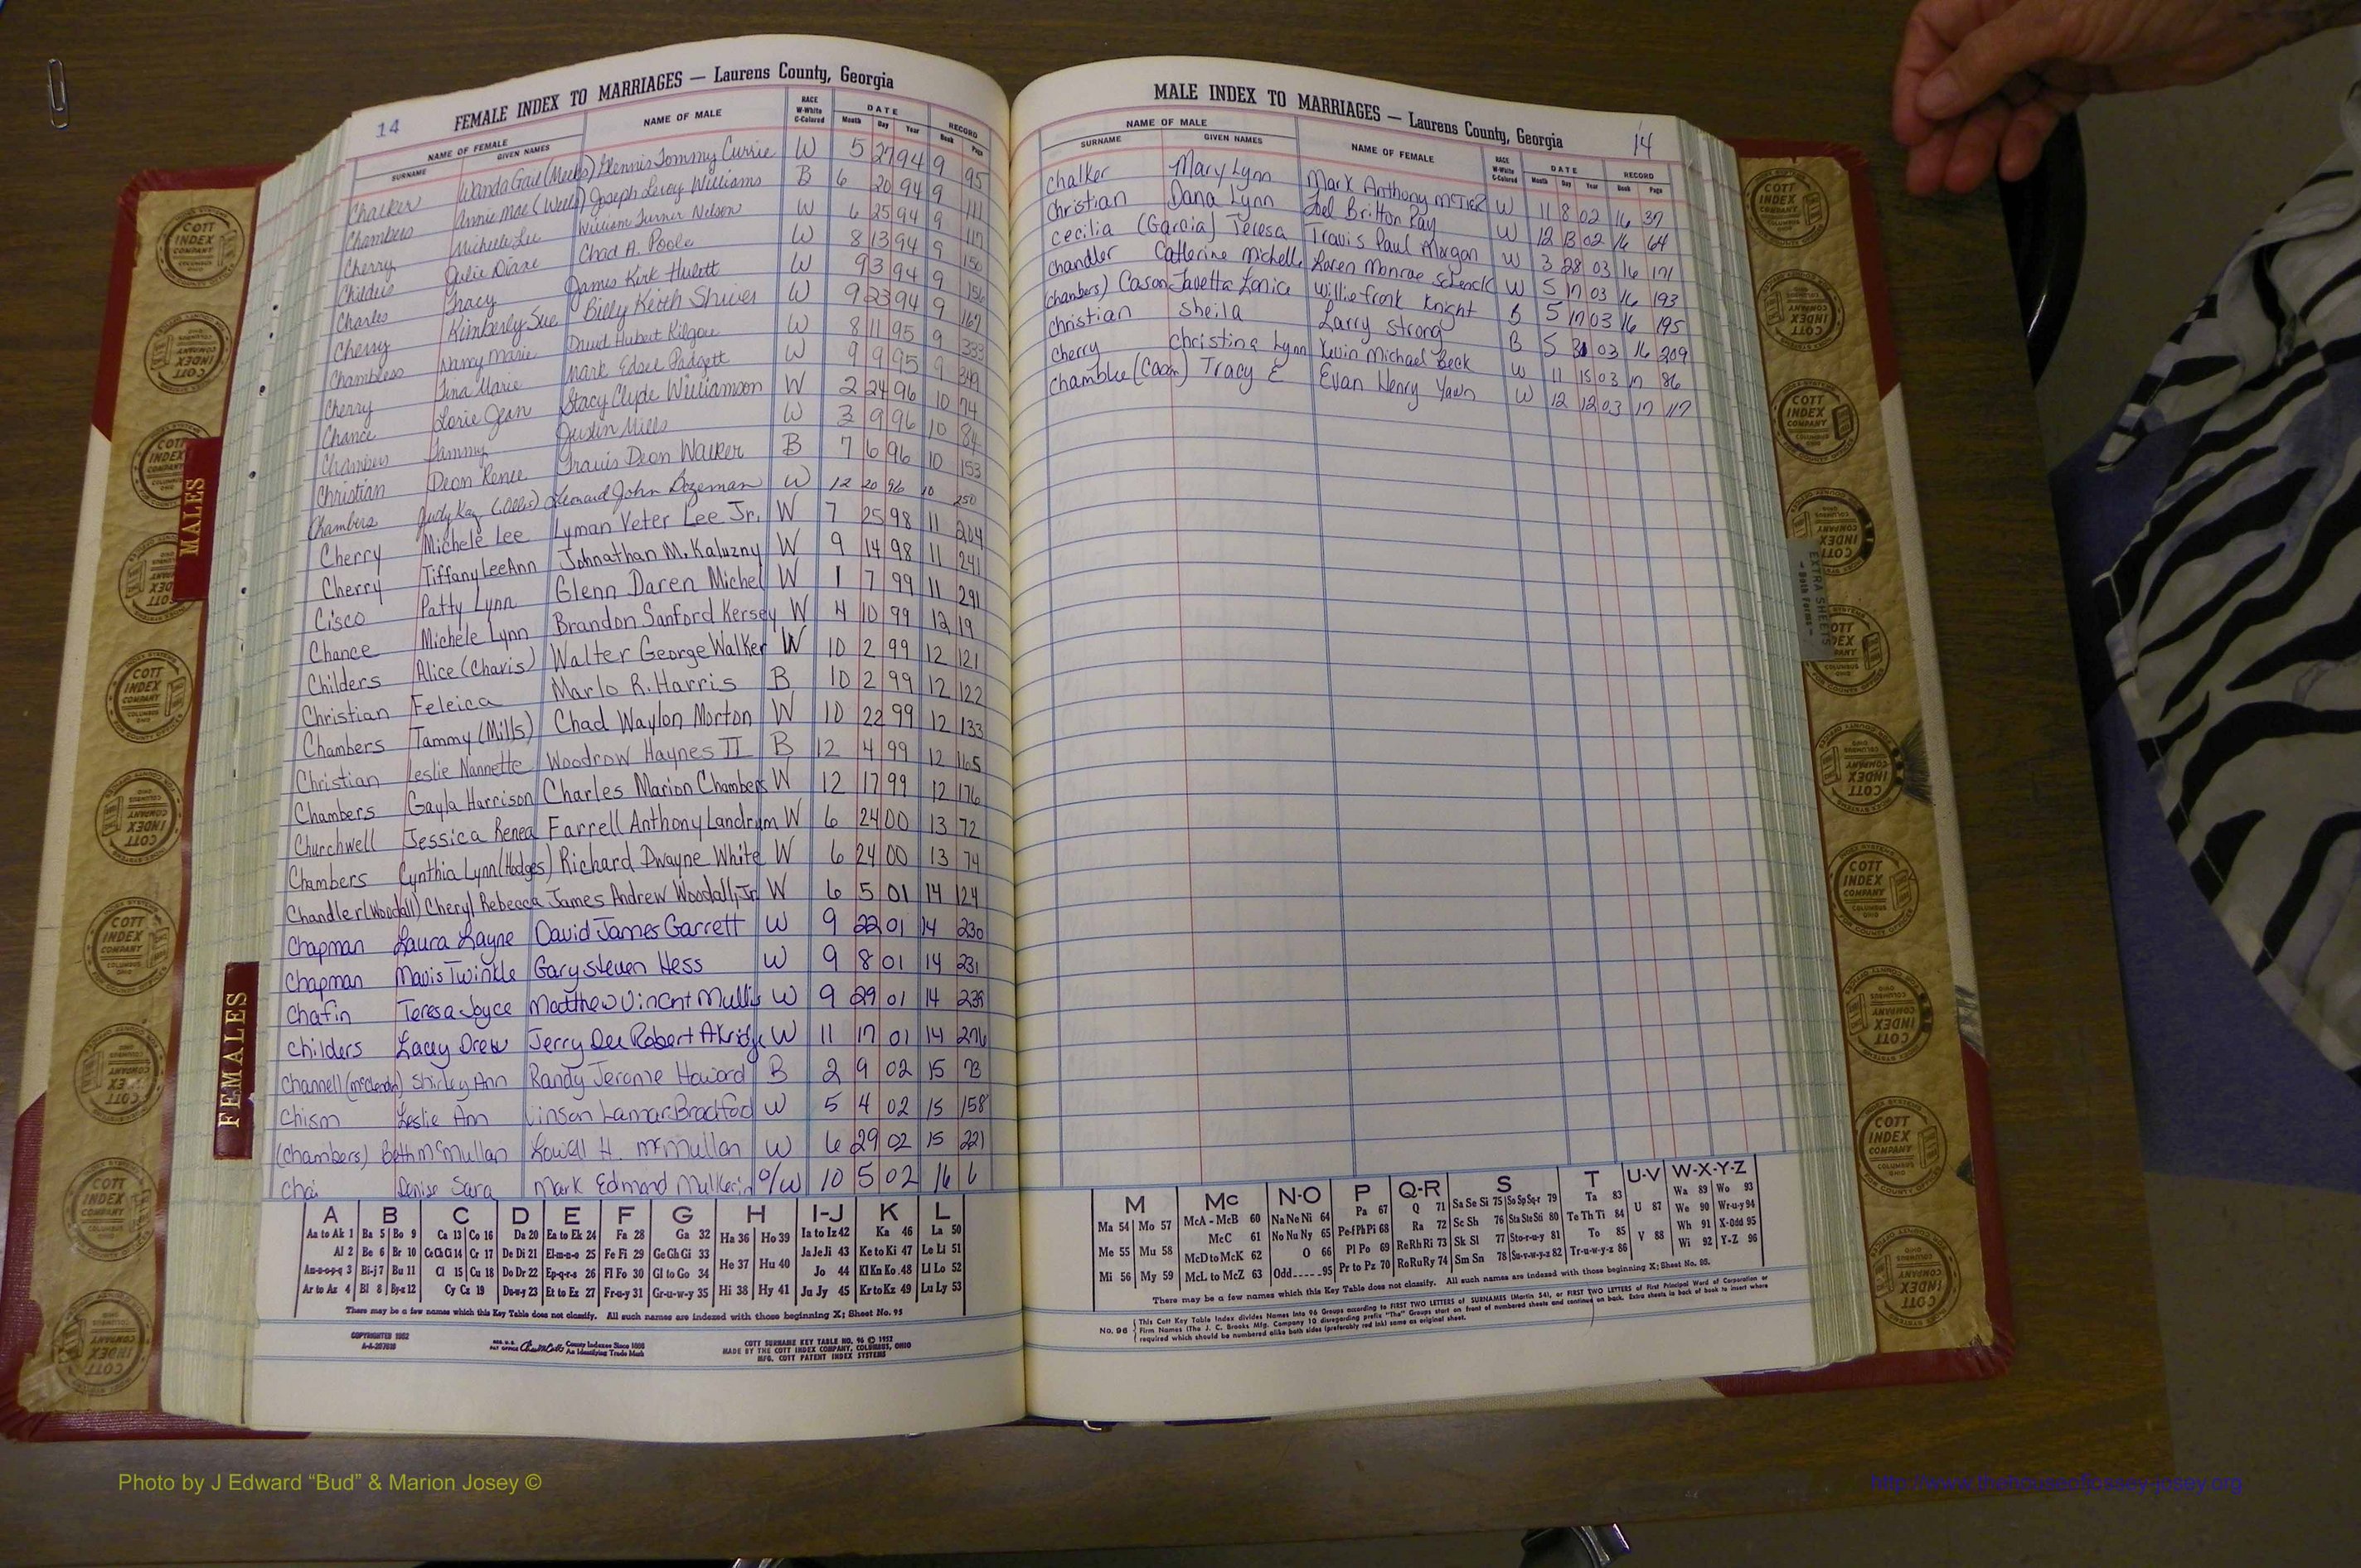 14
FEMALE INDEX TO MARRIAGES — Laurens County, Georgia
NAME OF FEMALE NAME OF MALE RACE W-White C-Colored DATE RECORD
SURNAME GIVEN NAMES Month Day Year Book Page
Chalker Wanda Gail (Meeks) Glennis Tommy Currie W 5 27 94 9 95
Chambers Annie Mae (Wells) Joseph Leroy Williams B 6 20 94 9 111
Cherry Michele Lee William Turner Nelson W 6 25 94 9 117
Childers Julie Diane Chad A. Poole W 8 13 94 9 150
Charles Tracy James Kirk Hulett W 9 3 94 9 156
Cherry Kimberly Sue Billy Keith Shiver W 9 23 94 9 167
Chambless Nancy Marie David Hubert Kilgore W 8 11 95 9 333
Cherry Tina Marie Mark Edsel Padgett W 9 9 95 9 349
Chance Lorie Jean Stacy Clyde Williamson W 2 24 96 10 74
Chambers Tammy Justin Mills W 3 9 96 10 84
Christian Deon Renee Travis Deon Walker B 7 6 96 10 153
Chambers Judy Kay Leonard John Bozeman W 12 20 96 10 250
Cherry Michele Lee Lyman Veter Lee Jr. W 7 25 98 11 204
Cherry Tiffany LeeAnn Johnathan M. Kaluzny W 9 14 98 11 241
Cisco Patty Lynn Glenn Daren Michel W 1 7 99 11 291
Chance Michele Lynn Brandon Sanford Kersey W 4 10 99 12 19
Childers Alice (Chavis) Walter George Walker W 10 2 99 12 121
Christian Feleica Marlo R. Harris B 10 2 99 12 122
Chambers Tammy (Mills) Chad Waylon Morton W 10 22 99 12 133
Christian Leslie Nannette Woodrow Haynes II B 12 4 99 12 165
Chambers Gayla Harrison Charles Marion Chambers W 12 17 99 12 176
Churchwell Jessica Renea Farrell Anthony Landrum W 6 24 00 13 72
Chambers Cynthia Lynn (Hodges) Richard Dwayne White W 6 24 00 13 74
Chandler (Woodall) Cheryl Rebecca James Andrew Woodall, Jr W 6 5 01 14 124
Chapman Laura Layne David James Garrett W 9 22 01 14 230
Chapman Mavis Twinkle Gary Steven Hess W 9 8 01 14 231
Chafin Teresa Joyce Matthew Vincent Mullis W 9 29 01 14 238
Childers Lacey Drew Jerry Dee Robert Akridge W 11 17 01 14 276
Channell (McClendon) Shirley Ann Randy Jerome Howard B 2 9 02 15 73
Chism Leslie Ann Vinson Lamar Bradford W 5 4 02 15 158
(Chambers) Beth McMullan Lowell H. McMullan W 6 29 02 15 221
Choi Denise Sara Mark Edmond O/W 10 5 02 16 6
A B C D E F G H I-J K L
Aa to Ak 1 Ba 5 Bo 9 Ca 13 Co 16 Da 20 Ea to Ek 24 Fa 28 Ga 32 Ha 36 Ho 39 Ia to Iz 42 Ka 46 La 50
Al 2 Be 6 Br 10 Ce Ch Ci 14 Cr 17 De Di 21 El-m-n-o 25 Fe Fi 29 Ge Gh Gi 33 Ja Je Ji 43 Ke to Ki 47 Le Li 51
An-o-p-q 3 Bi-j 7 Bu 11 Cl 15 Cu 18 Do Dr 22 Ep-q-r-s 26 Fl Fo 30 Gl to Go 34 He 37 Hu 40 Jo 44 Kl Kn Ko 48 Ll Lo 52
Ar to Az 4 Bl 8 By-z 12 Cy Cz 19 Du-w-y 23 Et to Ez 27 Fr-u-y 31 Gr-u-w-y 35 Hi 38 Hy 41 Ju Jy 45 Kr to Kz 49 Lu Ly 53
There may be a few names which this Key Table does not classify. All such names are indexed with those beginning X; Sheet No. 95
COPYRIGHTED 1952
County Indexes Since 1888
An Identifying Trade Mark
COTT SURNAME KEY TABLE NO. 96 © 1952
MADE BY THE COTT INDEX COMPANY, COLUMBUS, OHIO
MFG. COTT PATENT INDEX SYSTEMS
MALE INDEX TO MARRIAGES — Laurens County, Georgia
14
NAME OF MALE NAME OF FEMALE RACE W-White C-Colored DATE RECORD
SURNAME GIVEN NAMES Month Day Year Book Page
Chalker Mary Lynn Mark Anthony McTier W 11 8 02 16 37
Christian Dana Lynn Joel Britton Ray W 12 13 02 16 64
Cecilia (Garcia) Teresa Travis Paul Morgan W 3 28 03 16 171
Chandler Catherine Michelle Loren Monroe Schenck W 5 17 03 16 193
(Chambers) Cason Javetta Lonice Willie Frank Knight B 5 17 03 16 195
Christian Sheila Larry Strong B 5 31 03 16 209
Cherry Christina Lynn Kevin Michael Beck W 11 15 03 17 86
Chamblee (Cason) Tracy E Evan Henry Yawn W 12 12 03 17 117
M Mc N-O P Q-R S T U-V W-X-Y-Z
Ma 54 Mo 57 McA - McB 60 Na Ne Ni 64 Pa 67 Q 71 Sa Se Si 75 So Sp Sq-r 79 Ta 83 U 87 Wa 89 Wo 93
Me 55 Mu 58 McC 61 No Nu Ny 65 Pe-f Ph Pi 68 Ra 72 Sc Sh 76 Sta Ste Sti 80 Te Th Ti 84 We 90 Wr-u-y 94
McD to McK 62 O 66 Pl Po 69 Re Rh Ri 73 Sk Sl 77 Sto-r-u-y 81 To 85 V 88 Wh 91 X-Odd 95
Mi 56 My 59 McL to McZ 63 Odd-----95 Pr to Pz 70 Ro Ru Ry 74 Sm Sn 78 Su-v-w-y-z 82 Tr-u-w-y-z 86 Wi 92 Y-Z 96
There may be a few names which this Key Table does not classify. All such names are indexed with those beginning X; Sheet No. 95.
No. 96 This Cott Key Table Index divides Names into 96 Groups according to FIRST TWO LETTERS of SURNAMES (Martin 54), or FIRST TWO LETTERS of First Principal Word of Corporation or
Firm Names (The J. C. Brooks Mfg. Company 10 disregarding prefix "The" Groups start on front of numbered sheets and continue on back. Extra sheets in back of book to insert where
required which should be numbered alike both sides (preferably red ink) same as original sheet.
MALES
FEMALES
EXTRA SHEETS
COTT INDEX COMPANY COLUMBUS OHIO
Photo by J Edward “Bud” & Marion Josey ©
http://www.thehouseofjossey-josey.org